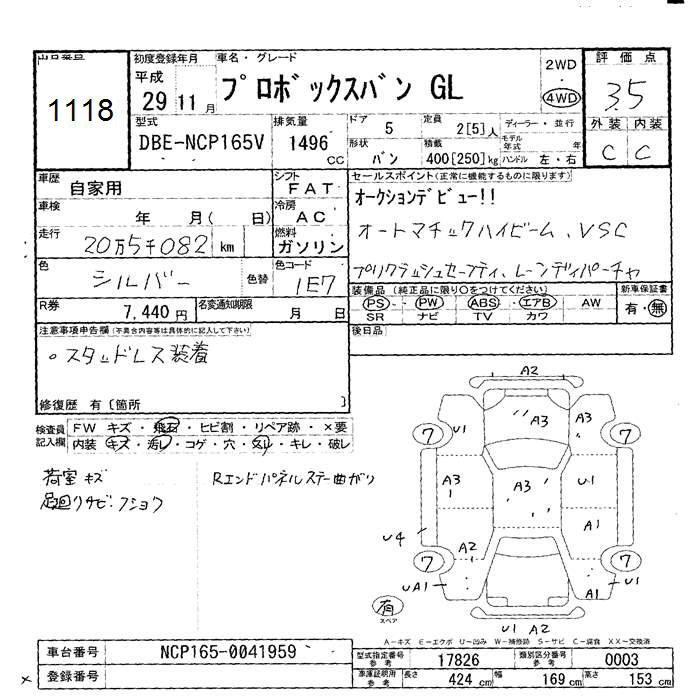 出品番号 初度登録年月 車名・グレード 評価点
1118
平成 29 11月 プロボックスバン GL 2WD ・ 4WD 3.5
外装 内装
C C
型式 排気量 ドア 定員 ディーラー・並行
DBE-NCP165V 1496 CC 5 2[5]人 モデル年式 年
形状 積載
バン 400[250]kg ハンドル 左・右
車歴 自家用 シフト FAT
車検 年 月( 日) 冷房 AC
走行 20万5千082 km 燃料 ガソリン
色 シルバー 色替 色コード 1E7
R券 7,440円 名変通知期限 月 日
セールスポイント(正常に機能するものに限ります)
オークションデビュー!!
オートマチックハイビーム、VSC
プリクラッシュセーフティ、レーンディパーチャ
装備品(純正品に限り○をつけてください) 新車保証書
PS・PW ABS・エアB AW 有・無
SR ナビ TV カワ
後日品
注意事項申告欄(不具合内容等は具体的に記入して下さい)
。スタッドレス装着
修復歴 有〔箇所 〕
検査員記入欄
FW キズ・飛石・ヒビ割・リペア跡・×要
内装 キズ・汚レ・コゲ・穴・スレ・キレ・破レ
荷室キズ
足回リサビ・フショク
Rエンドパネルステー曲ガリ
A2
U1 A3 A3
7 7
A3 A3 U1
A1
U4 A2
7 7
UA1 A1 U1
有
スペア
U1 A2
A-キズ E-エクボ U-凹み W-補修跡 S-サビ C-腐食 XX-交換済
車台番号 NCP165-0041959
登録番号
型式指定番号 参考 17826 類別区分番号 参考 0003
車庫証明用 参考 長さ 424 cm 幅 169 cm 高さ 153 cm